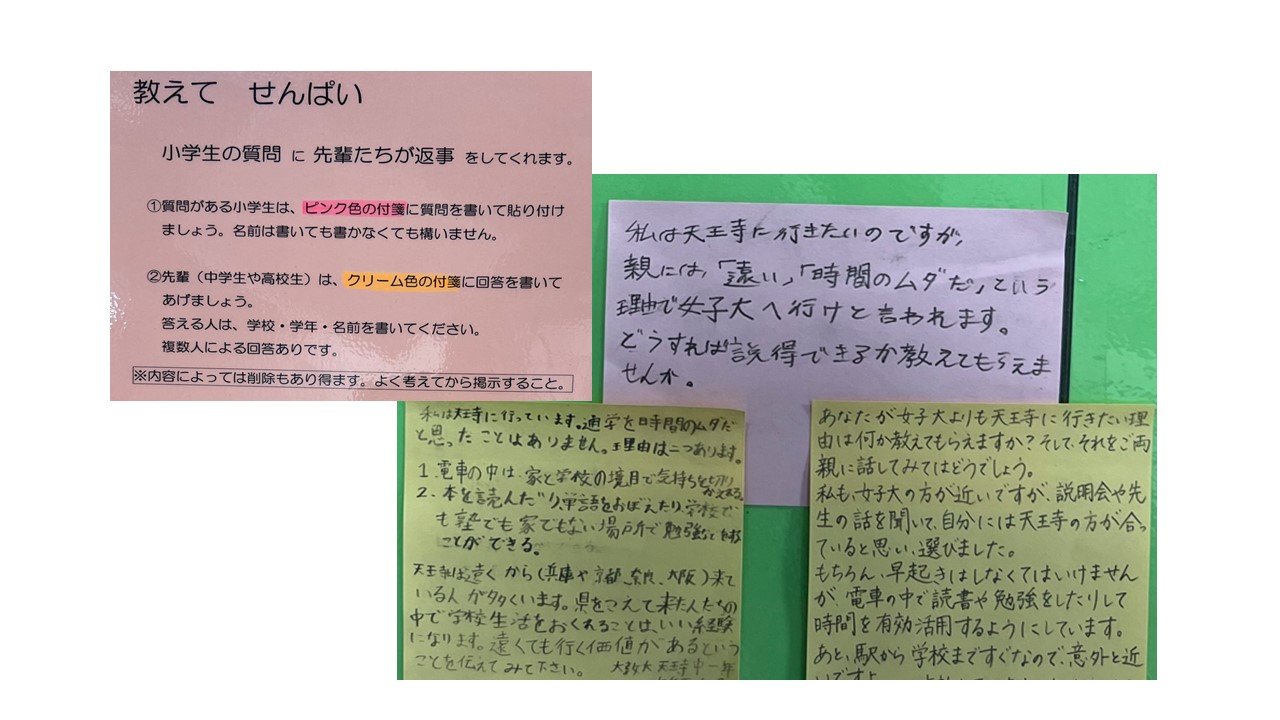 教えて せんぱい
小学生の質問 に 先輩たちが返事 をしてくれます。
①質問がある小学生は、ピンク色の付箋に質問を書いて貼り付け
ましょう。名前は書いても書かなくても構いません。
②先輩(中学生や高校生)は、クリーム色の付箋に回答を書いて
あげましょう。
答える人は、学校・学年・名前を書いてください。
複数人による回答ありです。
※内容によっては削除もあり得ます。よく考えてから掲示すること。
私は天王寺に行きたいのですが、
親には、「遠い」、「時間のムダだ」という
理由で女子大へ行けと言われます。
どうすれば説得できるか教えてもらえま
せんか。
私は天王寺に行っています。通学を時間のムダだ
と思ったことはありません。理由は二つあります。
1. 電車の中は、家と学校の境目で気持ちを切り
かえる
2. 本を読んだり、単語をおぼえたり、学校で
も塾でも家でもない場所で勉強などをする
ことができる。
天王寺は遠くから(兵庫や京都、奈良、大阪)来て
いる人が多くいます。県をこえて来た人たちの
中で学校生活をおくれることは、いい経験
になります。遠くても行く価値があるという
ことを伝えてみて下さい。 大教大天王寺中一年
あなたが女子大よりも天王寺に行きたい理
由は何か教えてもらえますか?そして、それをご両
親に話してみてはどうでしょう。
私も、女子大の方が近いですが、説明会や先
生の話を聞いて、自分には天王寺の方が合っ
ていると思い、選びました。
もちろん、早起きはしなくてはいけません
が、電車の中で読書や勉強をしたりして
時間を有効活用するようにしています。
あと、駅から学校まですぐなので、意外と近
いですよ